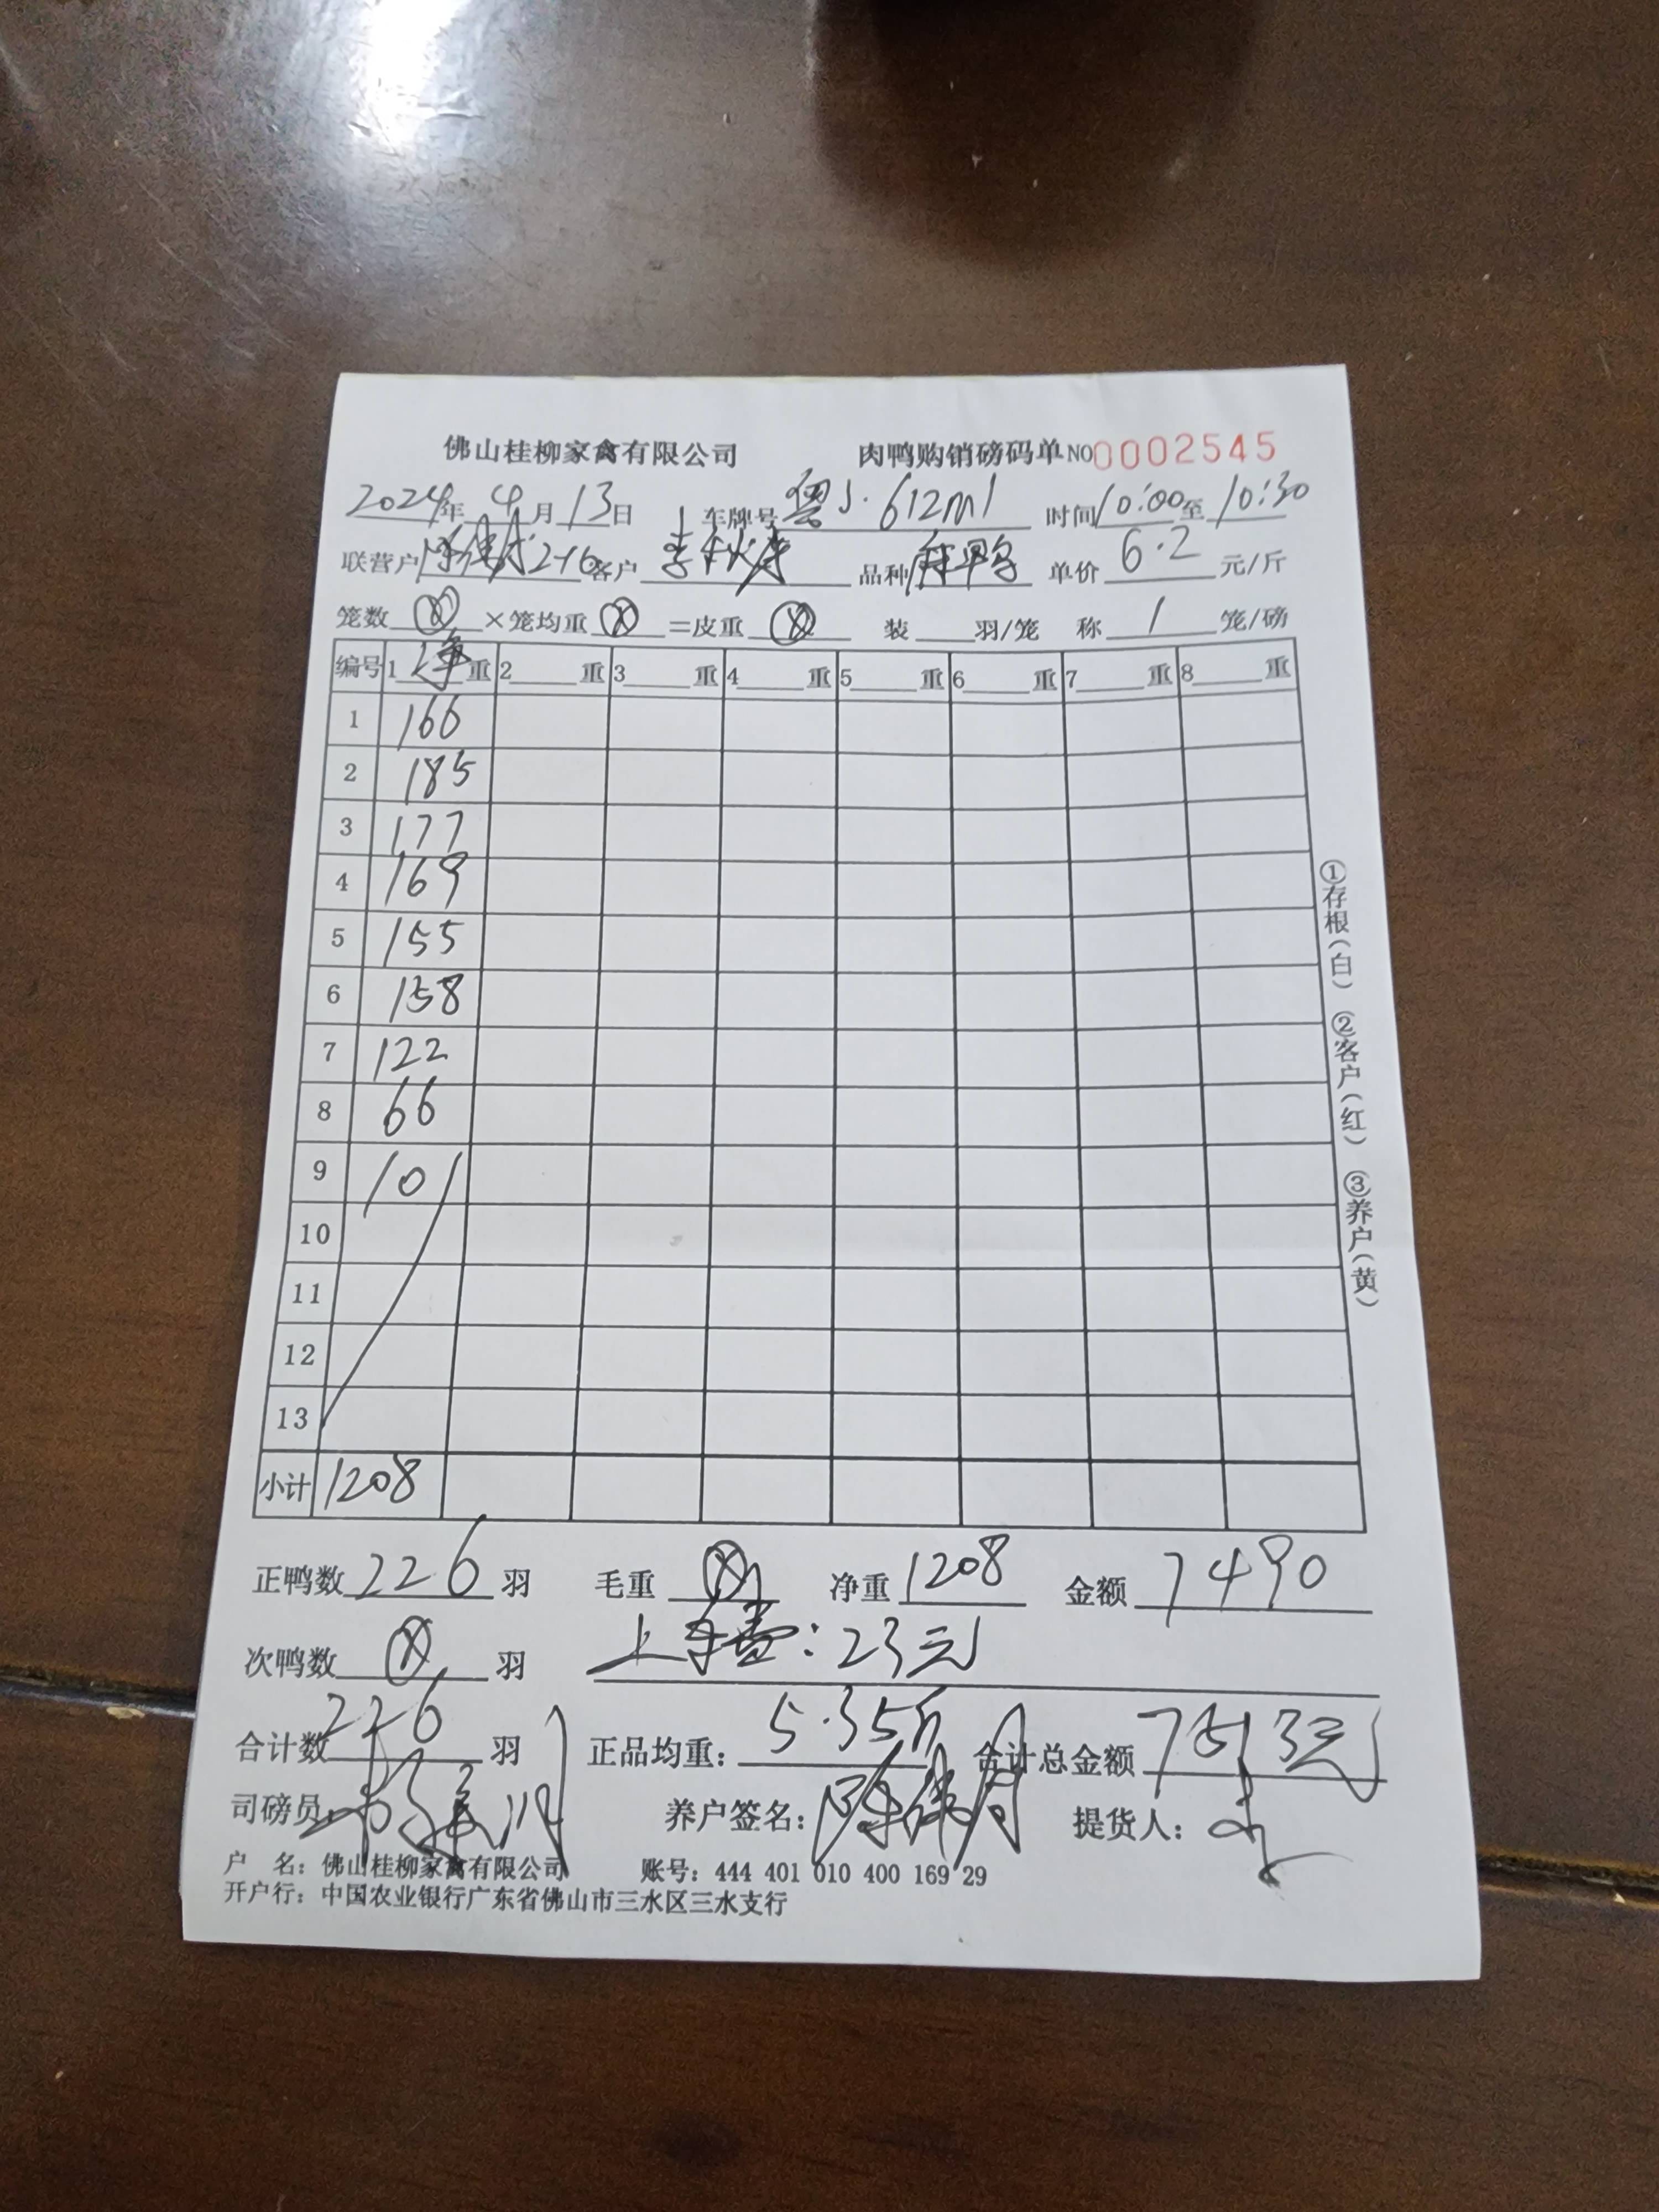 佛山桂柳家禽有限公司 肉鸭购销磅码单 NO 0002545
2024年 4月 13日 车牌号 粤J·612m1 时间 10:00 至 10:30
联营户 216 客户 李秋 品种 单价 6.2 元/斤
笼数 ⊗ ×笼均重 ⊗ =皮重 ⊗ 装 羽/笼 称 1 笼/磅
编号 1 净 重 2 重 3 重 4 重 5 重 6 重 7 重 8 重
1 166
2 185
3 177
4 169
5 155
6 158
7 122
8 66
9 101
10
11
12
13
小计 1208
正鸭数 226 羽 毛重 ⊗ 净重 1208 金额 7490
次鸭数 ⊗ 羽 上车费：23元
合计数 226 羽 正品均重： 5.35斤 合计总金额 7513元
司磅员： 养户签名： 提货人： 李
户 名：佛山桂柳家禽有限公司 账号：444 401 010 400 169 29
开户行：中国农业银行广东省佛山市三水区三水支行
①存根（白） ②客户（红） ③养户（黄）